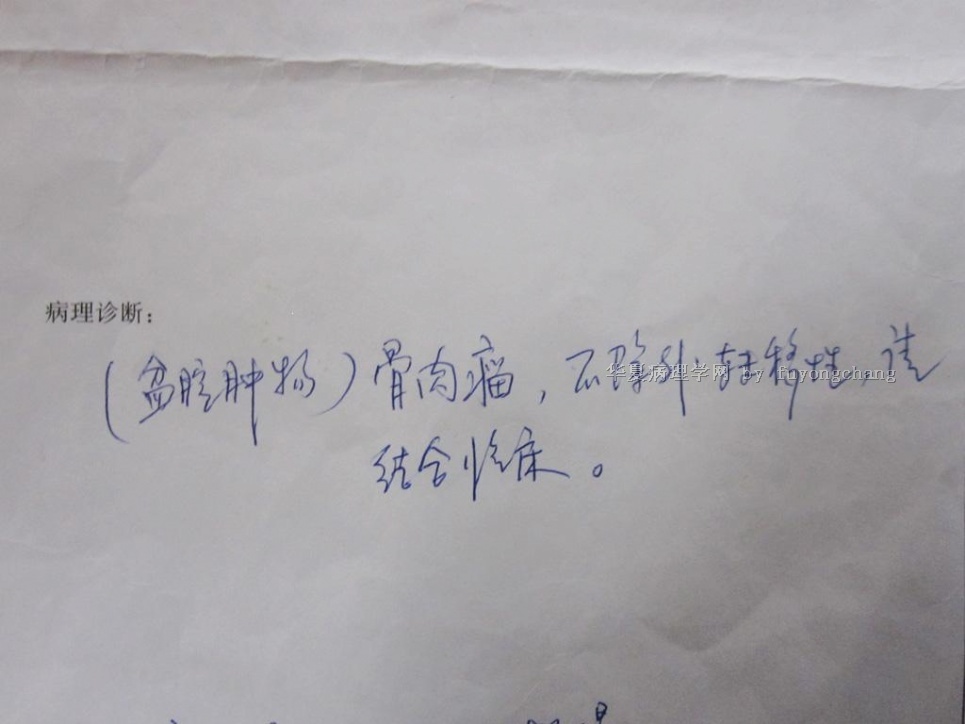 病理诊断：
（盆腔肿物）骨肉瘤，不除外转移性，请
华夏病理学网 by fuyongchang
结合临床。